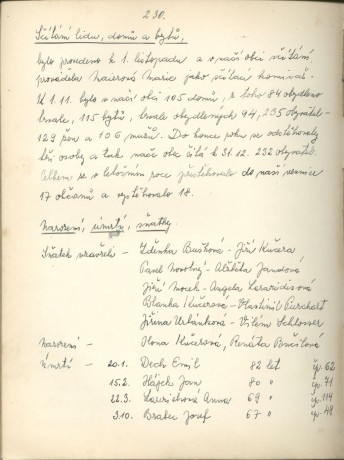 230.
Sčítání lidu, domů a bytů,
bylo provedeno k 1. listopadu a v naší obci sčítání
prováděla Maierová Marie jako sčítací komisař.
K 1.11. bylo v naší obci 105 domů, z toho 84 obydleno
trvale, 115 bytů, trvale obydlených 94, 235 obyvatel-
129 žen a 106 mužů. Do konce roku se odstěhovaly
tři osoby a tak naše obec čítá k 31.12. 232 obyvatel.
Celkem se v letošním roce přistěhovalo do naší vesnice
17 občanů a vystěhovalo 18.
Narození, úmrtí, sňatky.
Sňatek uzavřeli - Zdeňka Bušková - Jiří Kučera
Pavel Novotný - Alžběta Jandová
Jiří Mocek - Angela
Blanka Kučerová - Vlastimil Purchart
Jiřina Urbánková - Vilém Schlosser
Narození - Ilona Kučerová, Renáta Bučilová
Úmrtí - 20.1. Dech Emil 82 let čp. 62
15.2. Hájek Jan 80 " čp. 71
22.3. Anna 69 " čp. 114
3.10. Josef 67 " čp. 48